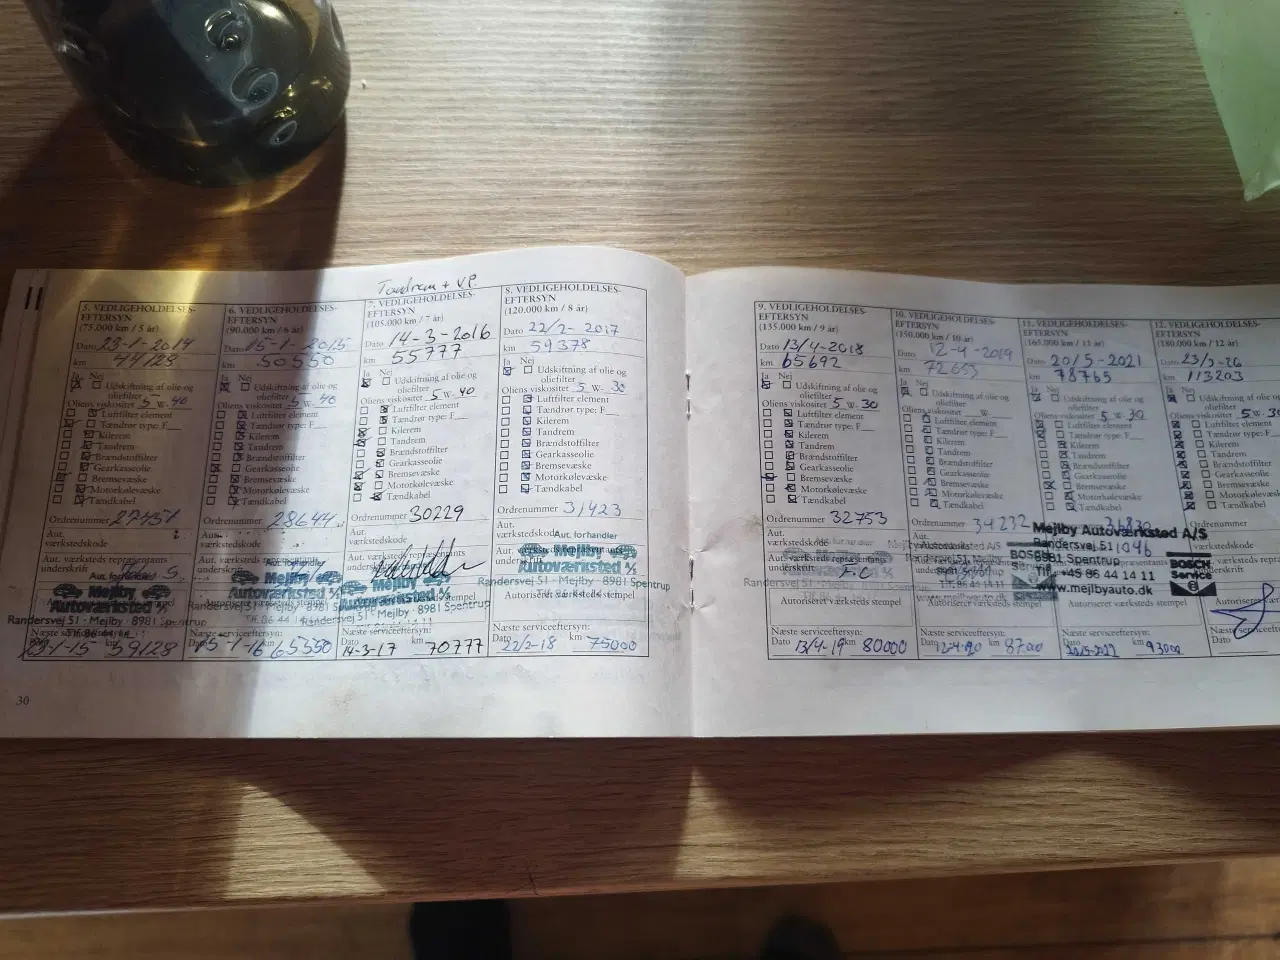 Tandrem + VP
5. VEDLIGEHOLDELSES-
EFTERSYN
(75.000 km / 5 år)
Dato 23-1-2014
km 44128
Ja Nej
Udskiftning af olie og
oliefilter
Oliens viskositet 5 W- 40
Luftfilter element
Tændrør type: F
Kilerem
Tandrem
Brændstoffilter
Gearkasseolie
Bremsevæske
Motorkølevæske
Tændkabel
Ordrenummer 27451
Aut.
værkstedskode
Aut. værksteds repræsentants
underskrift
Aut. forhandler
Mejlby
Autoværksted A/S
Randersvej 51 - Mejlby - 8981 Spentrup
Næste serviceeftersyn:
Dato 23-1-15 km 59128
6. VEDLIGEHOLDELSES-
EFTERSYN
(90.000 km / 6 år)
Dato 15-1-2015
km 50550
Ja Nej
Udskiftning af olie og
oliefilter
Oliens viskositet 5 W- 40
Luftfilter element
Tændrør type: F
Kilerem
Tandrem
Brændstoffilter
Gearkasseolie
Bremsevæske
Motorkølevæske
Tændkabel
Ordrenummer 28644
Aut.
værkstedskode
Aut. værksteds repræsentants
underskrift
Mejlby
Autoværksted A/S
Næste serviceeftersyn:
Dato 15-1-16 km 65550
7. VEDLIGEHOLDELSES-
EFTERSYN
(105.000 km / 7 år)
Dato 14-3-2016
km 55777
Ja Nej
Udskiftning af olie og
oliefilter
Oliens viskositet 5 W- 40
Luftfilter element
Tændrør type: F
Kilerem
Tandrem
Brændstoffilter
Gearkasseolie
Bremsevæske
Motorkølevæske
Tændkabel
Ordrenummer 30229
Aut.
værkstedskode
Aut. værksteds repræsentants
underskrift
Mejlby
Autoværksted A/S
Randersvej 51 - Mejlby - 8981 Spentrup
Næste serviceeftersyn:
Dato 14-3-17 km 70777
8. VEDLIGEHOLDELSES-
EFTERSYN
(120.000 km / 8 år)
Dato 22/2-2017
km 59378
Ja Nej
Udskiftning af olie og
oliefilter
Oliens viskositet 5 W- 30
Luftfilter element
Tændrør type: F
Kilerem
Tandrem
Brændstoffilter
Gearkasseolie
Bremsevæske
Motorkølevæske
Tændkabel
Ordrenummer 31423
Aut.
værkstedskode
Aut. forhandler
Aut. værksteds repræsentants
underskrift
Mejlby
Autoværksted A/S
Randersvej 51 - Mejlby - 8981 Spentrup
Autoriseret værksteds stempel
Næste serviceeftersyn:
Dato 22/2-18 km 75000
30
9. VEDLIGEHOLDELSES-
EFTERSYN
(135.000 km / 9 år)
Dato 13/4-2018
km 65692
Ja Nej
Udskiftning af olie og
oliefilter
Oliens viskositet 5 W 30
Luftfilter element
Tændrør type: F
Kilerem
Tandrem
Brændstoffilter
Gearkasseolie
Bremsevæske
Motorkølevæske
Tændkabel
Ordrenummer 32753
Aut.
værkstedskode
Aut. værksteds repræsentants
underskrift
Autoriseret værksteds stempel
Næste serviceeftersyn:
Dato 13/4-19 km 80000
10. VEDLIGEHOLDELSES-
EFTERSYN
(150.000 km / 10 år)
Dato 12-4-2019
km
Ja Nej
Udskiftning af olie og
oliefilter
Oliens viskositet W
Luftfilter element
Tændrør type: F
Kilerem
Tandrem
Brændstoffilter
Gearkasseolie
Bremsevæske
Motorkølevæske
Tændkabel
Ordrenummer 34232
Autoriseret værksteds stempel
Næste serviceeftersyn:
Dato 12-4-20 km
11. VEDLIGEHOLDELSES-
EFTERSYN
(165.000 km / 11 år)
Dato 20/5-2021
km 78765
Ja Nej
Udskiftning af olie og
oliefilter
Oliens viskositet 5 W 30
Luftfilter element
Tændrør type: F
Kilerem
Tandrem
Brændstoffilter
Gearkasseolie
Bremsevæske
Motorkølevæske
Tændkabel
Mejlby Autoværksted A/S
Randersvej 51
8981 Spentrup
Tlf. +45 86 44 14 11
www.mejlbyauto.dk
BOSCH
Service
Autoriseret værksteds stempel
Næste serviceeftersyn:
Dato 20/5-2022 km 93000
12. VEDLIGEHOLDELSES-
EFTERSYN
(180.000 km / 12 år)
km 113203
Ja Nej
Udskiftning
oliefilter
Oliens viskositet 5 W
Luftfilter element
Tændrør type: F
Kilerem
Tandrem
Brændstoffilter
Gearkasseolie
Bremsevæske
Motorkølevæske
Tændkabel
Ordrenummer
Aut.
værkstedskode
Autoriseret
Næste serviceefte
Dato